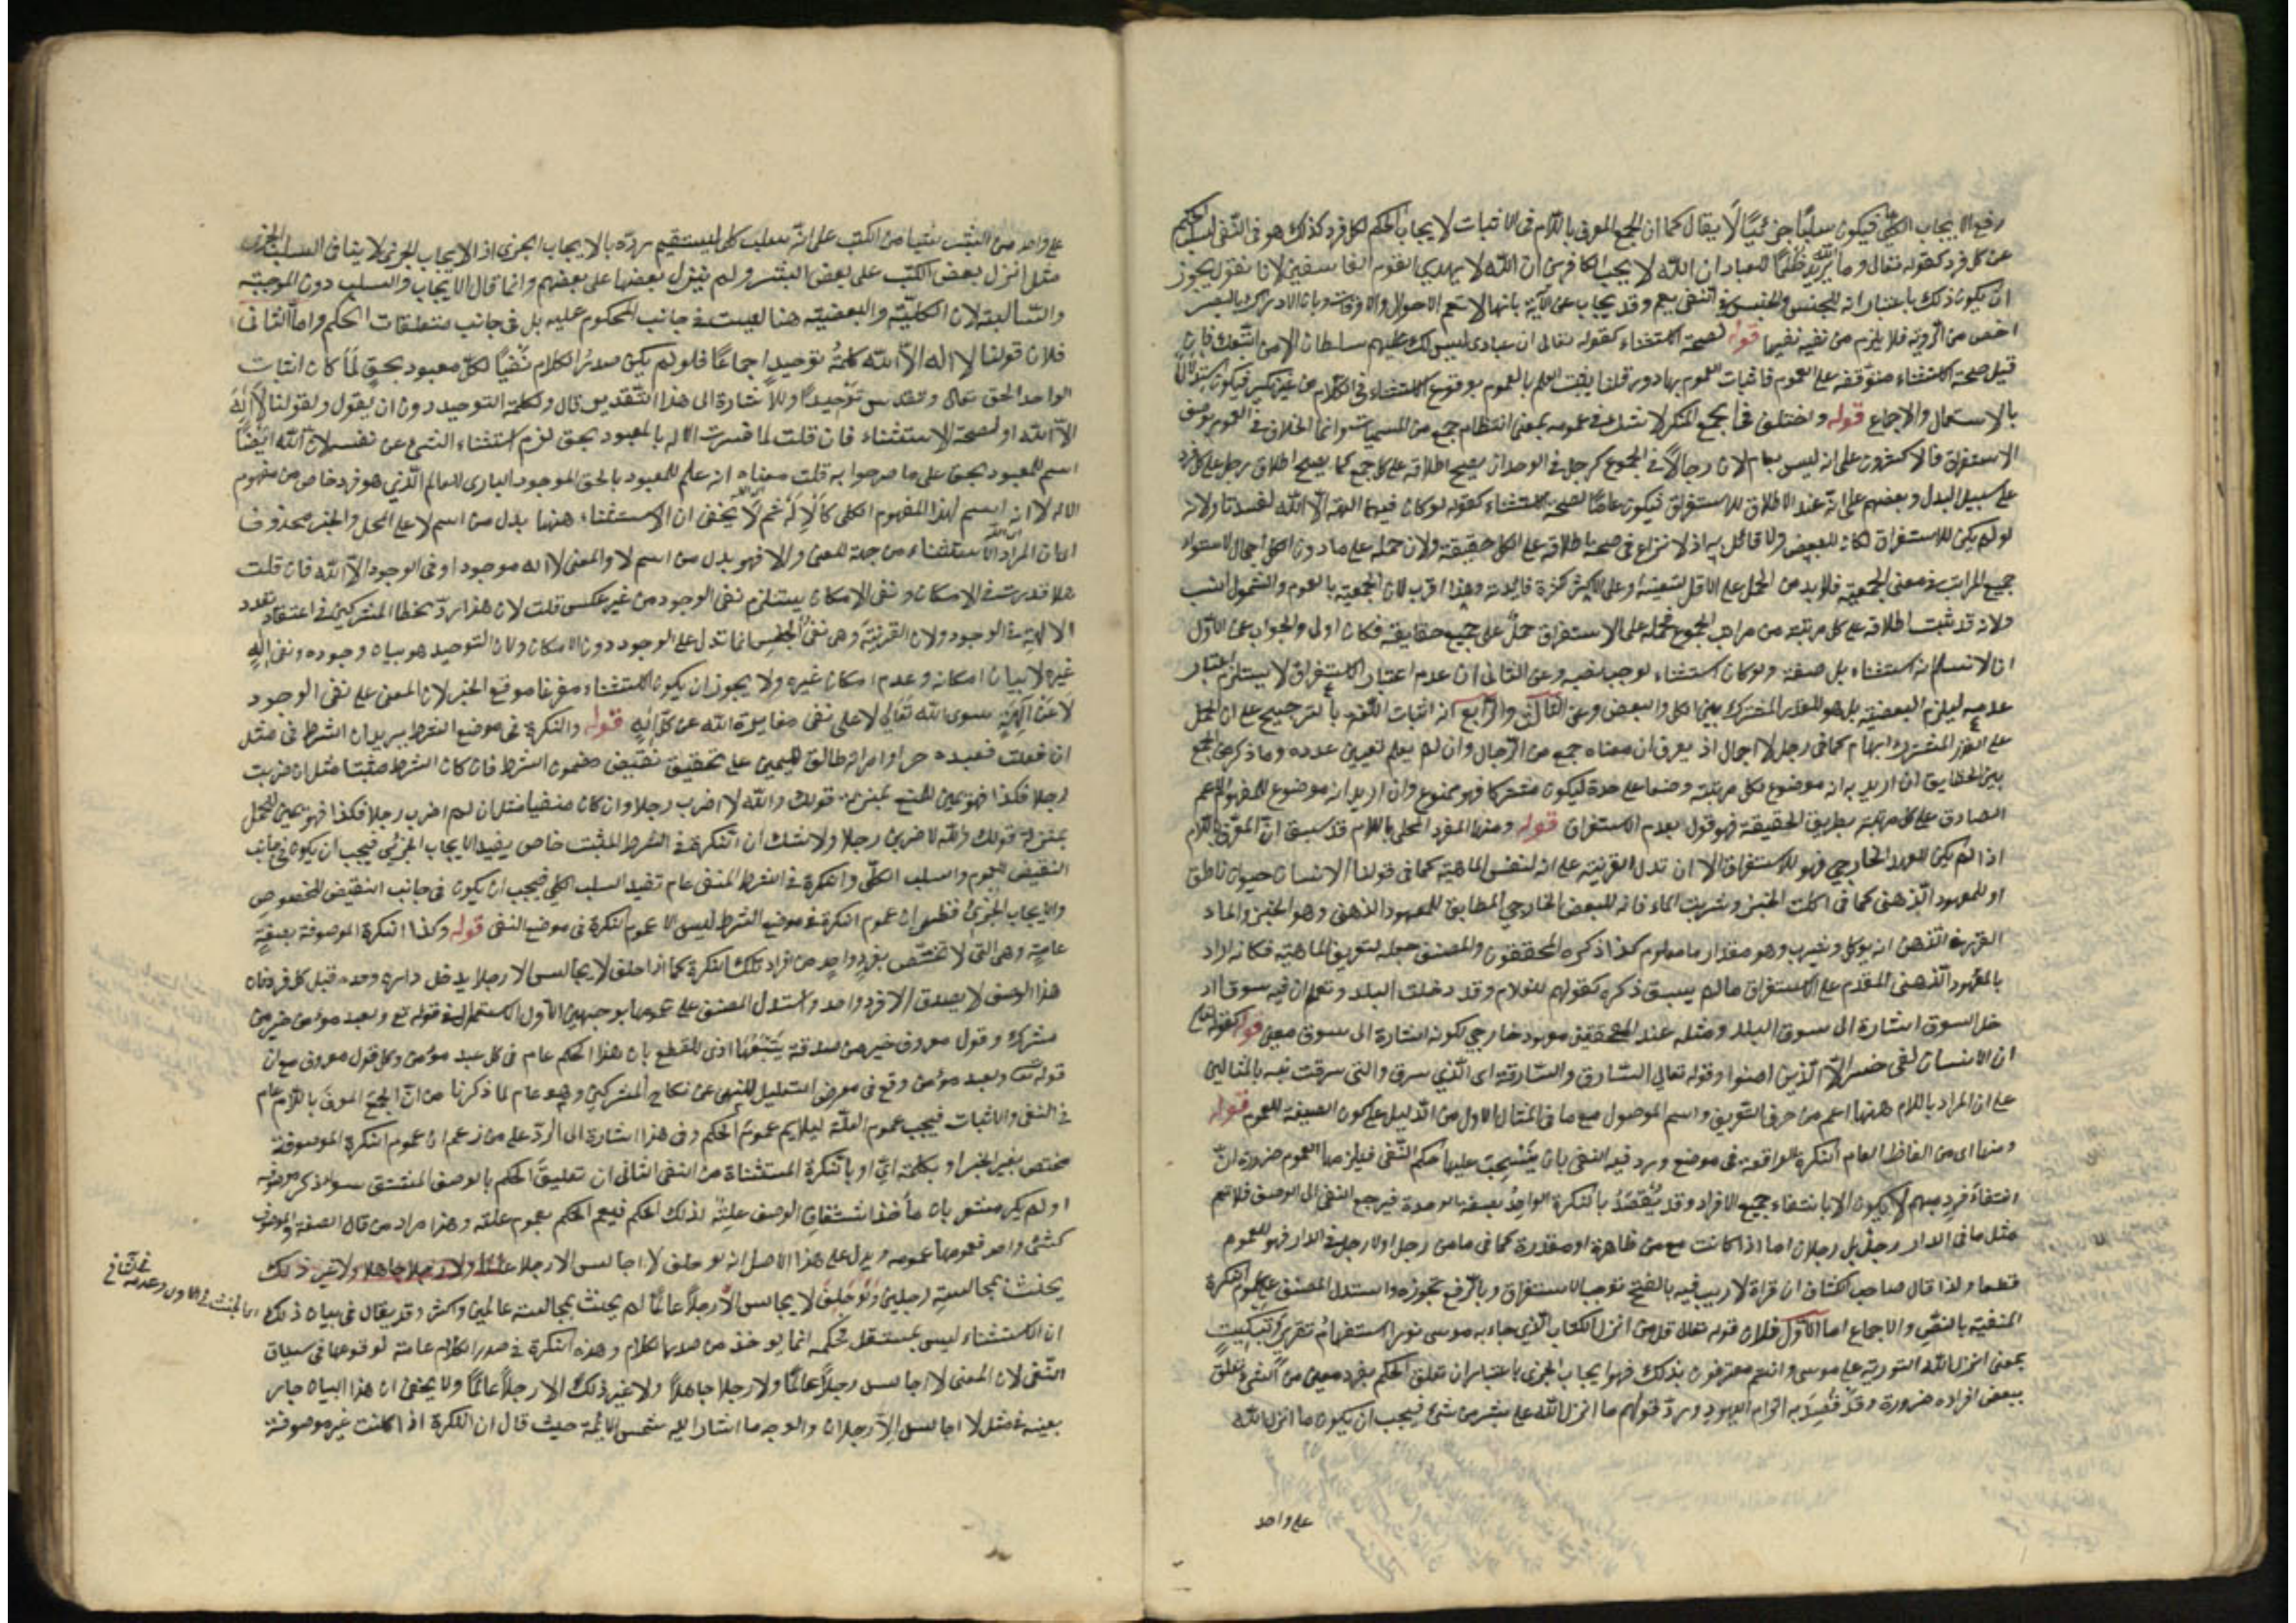 رفع الايجاب الكلي فيكون سلبًا جزئيًا لا يقال كما ان الجمع المعرف باللام في الاثبات لايجاب الحكم لكل فرد كذلك هو في النفي لسلب الحكم
عن كل فرد كقوله تعالى وما الله يريد ظلمًا للعباد ان الله لا يحب الكافرين ان الله لا يهدي القوم الفاسقين لانا نقول يجوز
ان يكون ذلك باعتبار انه للجنس والجنس في النفي يعم وقد يجاب عن الآية بانها لا تعم الاحوال والاوقات وبان الادراك بالبصر
اخص من الرؤية فلا يلزم من نفيه نفيها قوله لصحة الاستثناء كقوله تعالى ان عبادى ليس لك عليهم سلطان الا من اتبعك فان
قيل صحة الاستثناء متوقفة على العموم فاثبات العموم بها دور قلنا يثبت العلم بالعموم بوقوع الاستثناء في الكلام من غير نكير فيكون استدلالا
بالاستعمال والاجماع قوله واختلف في الجمع المنكر لا شك في عمومه بمعنى انتظام جمع من المسميات وانما الخلاف في العموم بوصف
الاستغراق فالاكثرون على انه ليس بعام لان رجالاً في الجموع كرجل في الوحدان يصح اطلاقه على كل جمع كما يصح اطلاق رجل على كل فرد
على سبيل البدل وبعضهم على انه عند الاطلاق للاستغراق فيكون عامًا لصحة الاستثناء كقوله لو كان فيهما الهة الا الله لفسدتا ولانه
لو لم يكن للاستغراق لكان للبعض ولا قائل به اذ لا نزاع في صحة اطلاقه على الكل حقيقة ولان حمله على ما دون الكل اجمال لاستواء
جميع المراتب في معنى الجمعية فلا بد من الحمل على الاقل لتيقنه او على الاكثر لكثرة فائدته وهذا اقرب لان الجمعية بالعموم والشمول انسب
ولانه قد ثبت اطلاقه على كل مرتبة من مراتب الجموع فحمله على الاستغراق حمل على جميع حقايقه فكان اولى والجواب عن الاول
انا لا نسلم انه استثناء بل صفة ولو كان استثناء لوجب نصبه وعن الثاني ان عدم اعتبار الاستغراق لا يستلزم اعتبار
عدمه ليلزم البعضية بل هو للقدر المشترك بين الكل والبعض وعن الثالث والرابع انه اثبات اللغة بالترجيح على ان الحمل
على القدر المشترك ابهام كما في رجل لا اجمال اذ يعرف ان معناه جمع من الرجال وان لم يعلم تعيين عدده وما ذكر من الجمع
بين الحقايق ان اريد به انه موضوع لكل مرتبة وضعا على حدة ليكون مشتركا فهو ممنوع وان اريد انه موضوع للمفهوم الاعم
الصادق على كل مرتبة بطريق الحقيقة فهو قول بعدم الاستغراق قوله ومنها المفرد المحلى باللام قد سبق ان المعرف باللام
اذا لم يكن للعهد الخارجي فهو للاستغراق الا ان تدل القرينة على انه لنفس الماهية كما في قولنا الانسان حيوان ناطق
او للمعهود الذهني كما في اكلت الخبز وشربت الماء فانه للبعض الخارجي المطابق للمعهود الذهني وهو الخبز والماء
المقرر في الذهن انه يوكل ويشرب وهو مقدار ما معلوم كذا ذكره المحققون والمصنف جعله لتعريف الماهية فكانه اراد
بالمعهود الذهني المقدم على الاستغراق ما لم يسبق ذكره كقولهم للغلام وقد دخلت البلد وتعلم ان فيه سوقا اد
خل السوق اشارة الى سوق البلد ومثله عند المحققين معهود خارجي لكونه اشارة الى سوق معين قوله كقوله تعالى
ان الانسان لفى خسر الا الذين امنوا وقوله تعالى السارق والسارقة اى الذي سرق والتي سرقت نبه بالمثالين
على ان المراد باللام ههنا اعم من حرف التعريف واسم الموصول مع ما في المثال الاول من الدليل على كون الصيغة للعموم قوله
ومنها اى من الفاظ العام النكرة الواقعة في موضع ورد فيه النفي بان ينسحب عليها حكم النفي فيلزمها العموم ضرورة ان
انتفاء فرد مبهم لا يكون الا بانتفاء جميع الافراد وقد يقصد بالنكرة الواحد بصفة الوحدة فيرجع النفي الى الوصف فلا تعم
مثل ما في الدار رجل بل رجلان اما اذا كانت مع من ظاهرة او مقدرة كما في ما من رجل او لا رجل في الدار فهو للعموم
قطعا ولذا قال صاحب الكشاف ان قراة لا ريب فيه بالفتح توجب الاستغراق وبالرفع تجوزه واستدل المصنف على عموم النكرة
المنفية بالنص والاجماع اما الاول فلان قوله تعالى قل من انزل الكتاب الذي جاء به موسى نورا استفهام تقرير وتبكيت
بمعنى انزل الله التورية على موسى وانتم معترفون بذلك فهو ايجاب الجزئي باعتبار ان تعلق الحكم بفرد معين من الشيء تعلق
ببعض افراده ضرورة وقد قصد به الزام اليهود ورد قولهم ما انزل الله على بشر من شئ فيجب ان يكون ما انزل الله
على واحد
على واحد من البشر شيئا من الكتب على انه سلب كلى ليستقيم رده بالايجاب الجزى اذ الايجاب الجزى لا ينافى السلب الجزى
مثل انزل بعض الكتب على بعض البشر ولم ينزل بعضها على بعضهم وانما قال الايجاب والسلب دون الموجبة
والسالبة لان الكلية والبعضية هنا ليست في جانب المحكوم عليه بل في جانب متعلقات الحكم واما الثاني
فلان قولنا لا اله الا الله كلمة توحيد اجماعًا فلو لم يكن صدر الكلام نفيًا لكل معبود بحق لما كان اثبات
الواحد الحق تعالى وتقدس توحيدًا وللاشارة الى هذا التقدير قال ولكلمة التوحيد دون ان يقول ولقولنا لا اله
الا الله او لصحة الاستثناء فان قلت لما فسرت الاله بالمعبود بحق لزم استثناء الشئ عن نفسه لان الله ايضًا
اسم للمعبود بحق على ما صرحوا به قلت معناه انه علم للمعبود بالحق الموجود البارى للعالم الذي هو فرد خاص من مفهوم
الاله لا انه اسم لهذا المفهوم الكلى كالاله ثم لا يخفى ان الاستثناء ههنا بدل من اسم لا على المحل والخبر محذوف
المراد الاستثناء من جهة المعنى والا فهو بدل من اسم لا والمعنى لا اله موجود او في الوجود الا الله فان قلت
هلا قدرت في الامكان ونفى الامكان يستلزم نفى الوجود من غير عكس قلت لان هذا رد لخطا المشركين في اعتقاد تعدد
الالهة في الوجود ولان القرينة وهى نفى الجنس انما تدل على الوجود دون الامكان ولان التوحيد هو بيان وجوده ونفى اله
غيره لا بيان امكانه وعدم امكان غيره ولا يجوز ان يكون الاستثناء مفرغا موقع الخبر لان المعنى على نفى الوجود
لا عن الهة سوى الله تعالى لا على نفى مغايرة الله عن كل اله قوله والنكرة في موضع الشرط يريد ان الشرط في مثل
ان فعلت فعبده حر او امراته طالق لليمين على تحقيق نقيض مضمون الشرط فان كان الشرط مثبتا مثل ان ضربت
رجلا فكذا فهو يمين للمنع بمنزلة قولك والله لا اضرب رجلا وان كان منفيا مثل ان لم اضرب رجلا فكذا فهو يمين للحمل
بمنزلة قولك والله لاضربن رجلا ولا شك ان النكرة في الشرط المثبت خاص يفيد الايجاب الجزئى فيجب ان يكون في جانب
النقيض للعموم والسلب الكلى والنكرة في الشرط المنفى عام تفيد السلب الكلى فيجب ان يكون في جانب النقيض للخصوص
والايجاب الجزئ فظهر ان عموم النكرة في موضع الشرط ليس الا عموم النكرة في موضع النفى قوله وكذا النكرة الموصوفة بصفة
عامة وهى التى لا تختص بفرد واحد من افراد تلك النكرة كما اذا حلف لا يجالس الا رجلا يدخل داره وحده قبل كل فرد فان
هذا الوصف لا يصدق الا على فرد واحد واستدل المصنف على عمومها بوجهين الاول الاستعمال في قوله تع ولعبد مؤمن خير من
مشرك وقول معروف خير من صدقة يتبعها اذى للقطع بان هذا الحكم عام في كل عبد مؤمن وكل قول معروف مع ان
قوله تعالى ولعبد مؤمن وقع في معرض التعليل للنهى عن نكاح المشركين وهو عام لما ذكرنا من ان الجمع المعرف باللام عام
في النفى والاثبات فيجب عموم العلة ليلايم عموم الحكم وفى هذا اشارة الى الرد على من زعم ان عموم النكرة الموصوفة
مختص بغير الخبر او بكلمة اى او بالنكرة المستثناة من النفى الثانى ان تعليق الحكم بالوصف المشتق سواء ذكر موصوفه
او لم يذكر مشعر بان ماخذ اشتقاق الوصف علة لذلك الحكم فيعم الحكم بعموم علته وهذا مراد من قال الصفة والموصوف
كشئ واحد فعمومها عمومه ويدل على هذا الاصل انه لو حلف لا اجالس الا رجلا عالما ولا رجلا جاهلا ولا غير ذلك
يحنث بمجالسة رجلين ولو حلف لا يجالس الا رجلاً عالمًا لم يحنث بمجالسة عالمين واكثر وقد يقال في بيان ذلك
ان الاستثناء ليس بمستقل فحكمه انما يوخذ من صدر الكلام وهذه النكرة في صدر الكلام عامة لوقوعها في سياق
النفى لان المعنى لا اجالس رجلاً عالمًا ولا رجلا جاهلاً ولا غير ذلك الا رجلاً عالمًا ولا يخفى ان هذا البيان جار
بعينه في مثل لا اجالس الا رجلان والوجه ما اشار اليه شمس الائمة حيث قال ان النكرة اذا كانت غير موصوفة